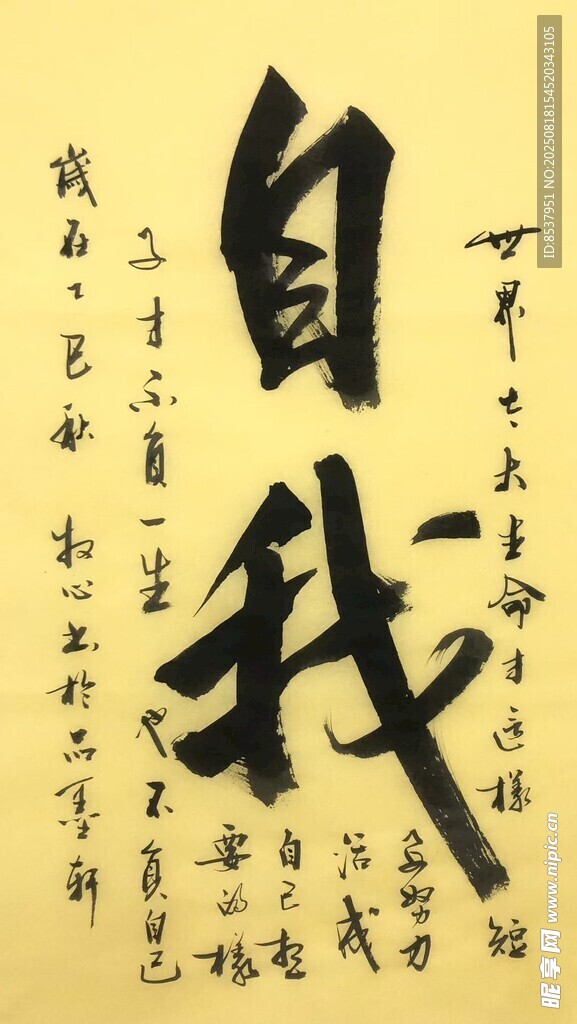 自我
世界太大生命才這樣短
要努力
活成
自己想
要的樣
子才不負一生 也不負自己
歲在乙巳秋 牧心書於品墨軒
ID:8537951 NO:20250818154520343105
昵享网 www.nipic.cn